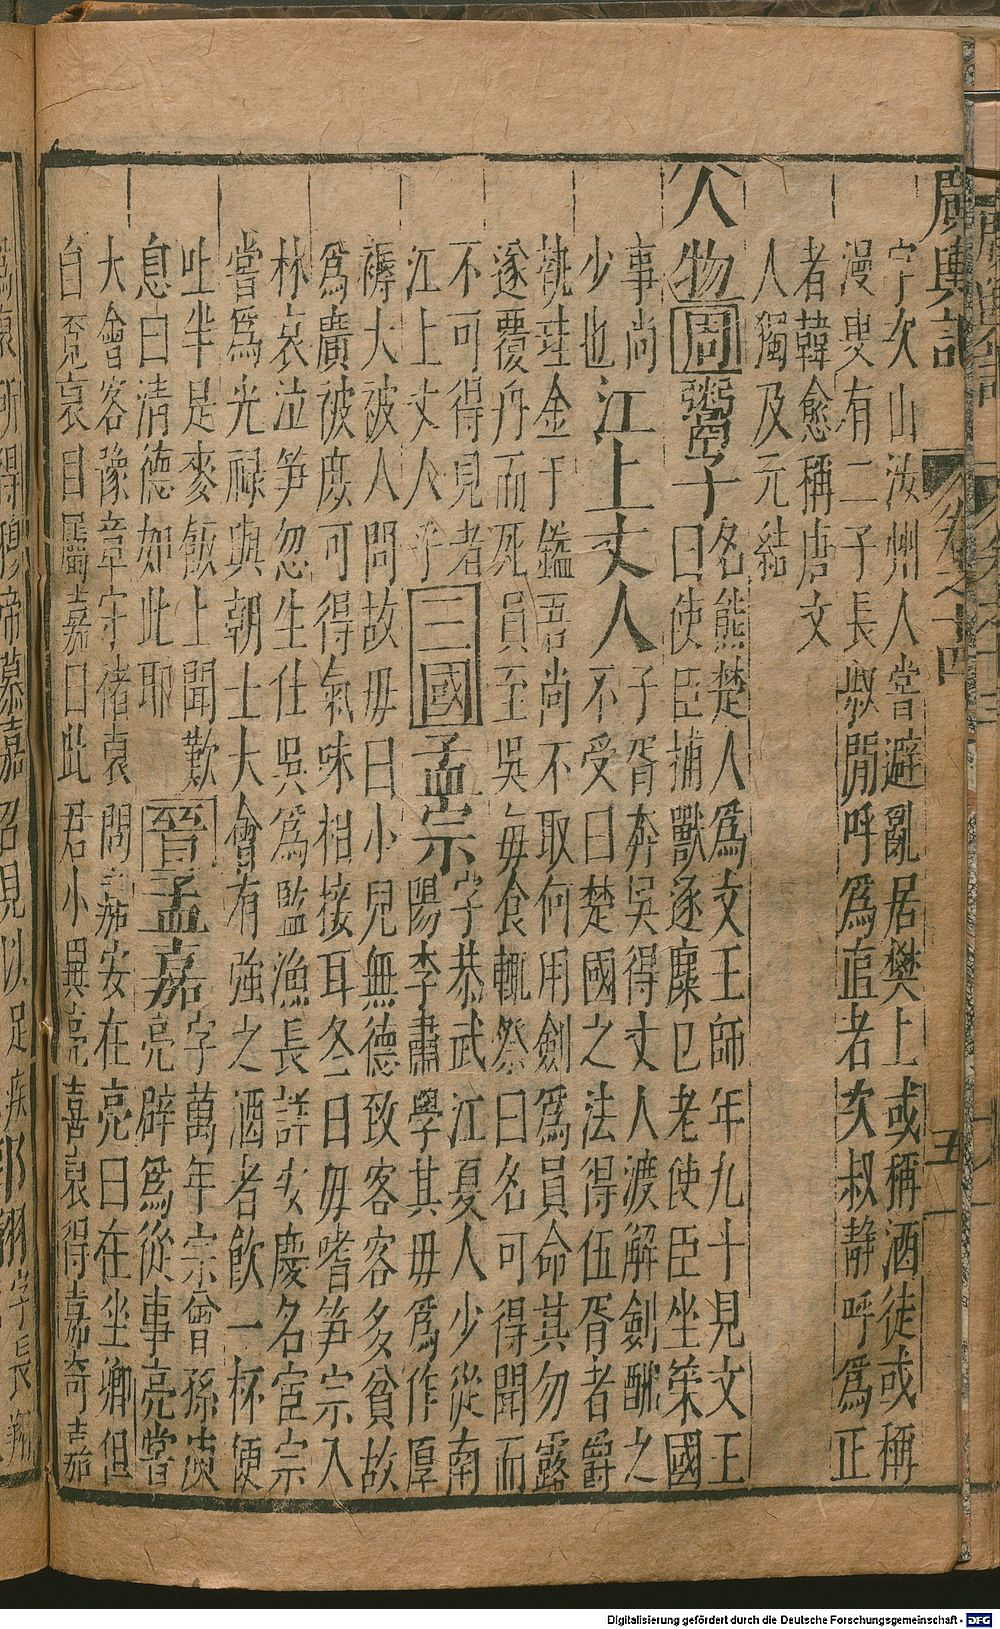 廣輿記 卷之十四 五
字次山汝州人嘗避亂居樊上或稱酒徒或稱
漫叟有二子長叔閒呼爲直者次叔靜呼爲正
者韓愈稱唐文
人獨及元結
人物周鬻子名熊楚人爲文王師年九十見文王
曰使臣捕獸逐麋已老使臣坐策國
事尚
少也江上丈人子胥奔吳得丈人渡解劍酬之
不受曰楚國之法得伍胥者爵
執珪金千鎰吾尚不取何用劍爲員命其勿露
遂覆舟而死員至吳每食輒祭曰名可得聞而
不可得見者
江上丈人乎三國孟宗字恭武江夏人少從南
陽李肅學其毋爲作厚
褥大被人問故毋曰小兒無德致客客多貧故
爲廣被庶可得氣味相接耳冬日毋嗜笋宗入
林哀泣笋忽生仕吳爲監漁長詳安慶名宦宗
嘗爲光祿與朝士大會有強之酒者飲一杯便
吐半是麥飯上聞歎
息曰清德如此耶晉孟嘉字萬年宗曾孫庾
亮辟爲從事亮嘗
大會客豫章守褚裒問嘉安在亮曰在坐卿但
自覓裒目屬嘉曰此君小異亮喜裒得嘉奇嘉
所得穆帝慕嘉召見以足疾
字長翔
Digitalisierung gefördert durch die Deutsche Forschungsgemeinschaft - DFG